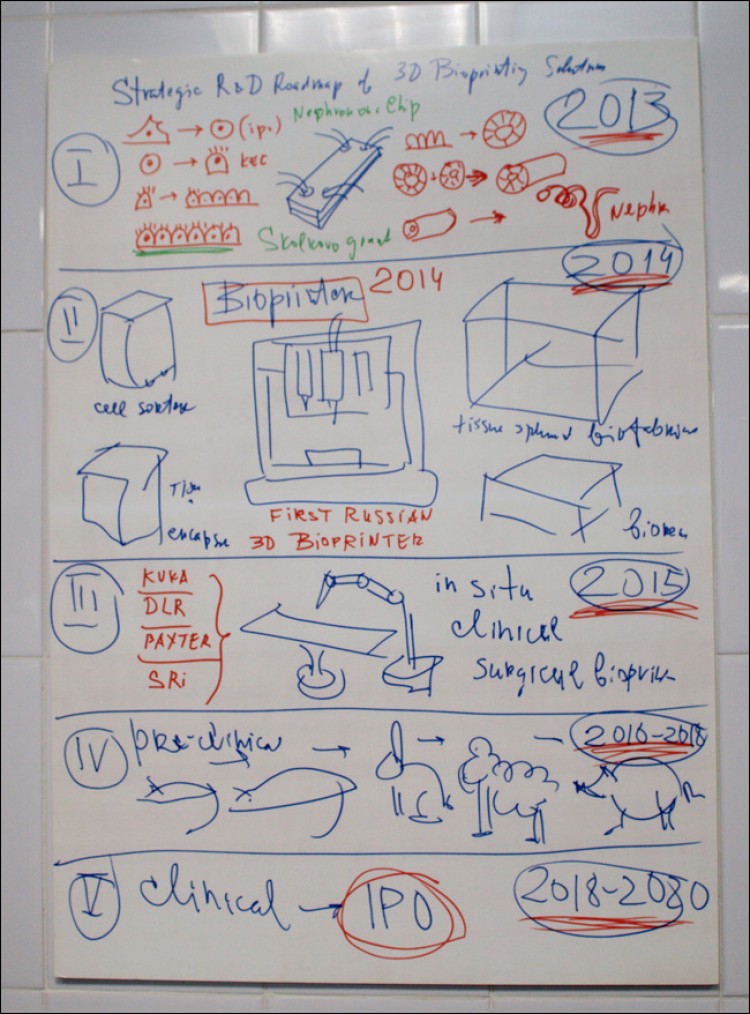 Strategic R&D Roadmap of 3D Bioprinting Solutions
2013
I
(ips)
Nephron on a Chip
KEC
Skolkovo grant
Nephr
II
Bioprinter 2014
2014
cell sorter
tissue spheroid biofabricator
encapse
FIRST RUSSIAN
3D BIOPRINTER
III
KUKA
DLR
PAXTER
SRi
in situ
clinical
surgical bioprin
2015
IV
pre-clinical
2016-2018
V
clinical → IPO
2018-2030